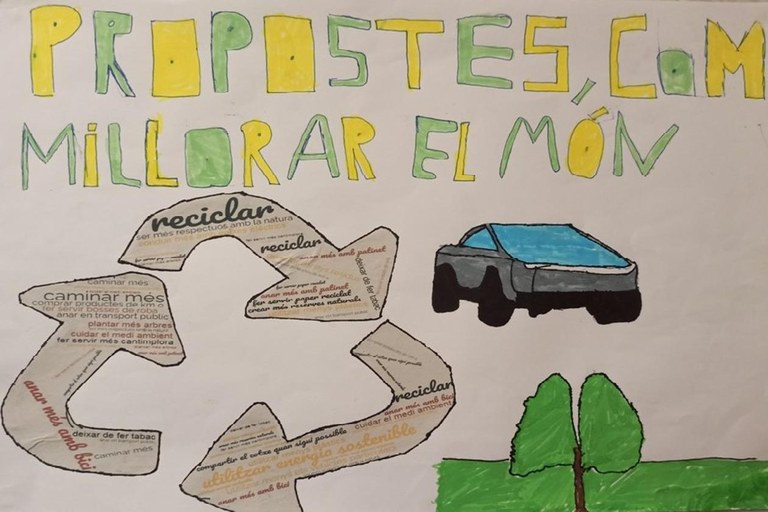 PROPOSTES, COM
MILLORAR EL MÓN
reciclar
ser més respectuós amb la natura
reciclar
anar més amb patinet
deixar de fer tabac
anar més amb patinet
fer servir paper reciclat
crear més reserves naturals
caminar més
caminar més
comprar productes de km 0
fer servir bosses de roba
anar en transport públic
plantar més arbres
cuidar el medi ambient
fer servir més cantimplora
anar més amb bici
deixar de fer tabac
caminar més
reciclar
anar més amb bici
cuidar el medi ambient
compartir el cotxe quan sigui possible
utilitzar energia sostenible
anar més amb bici